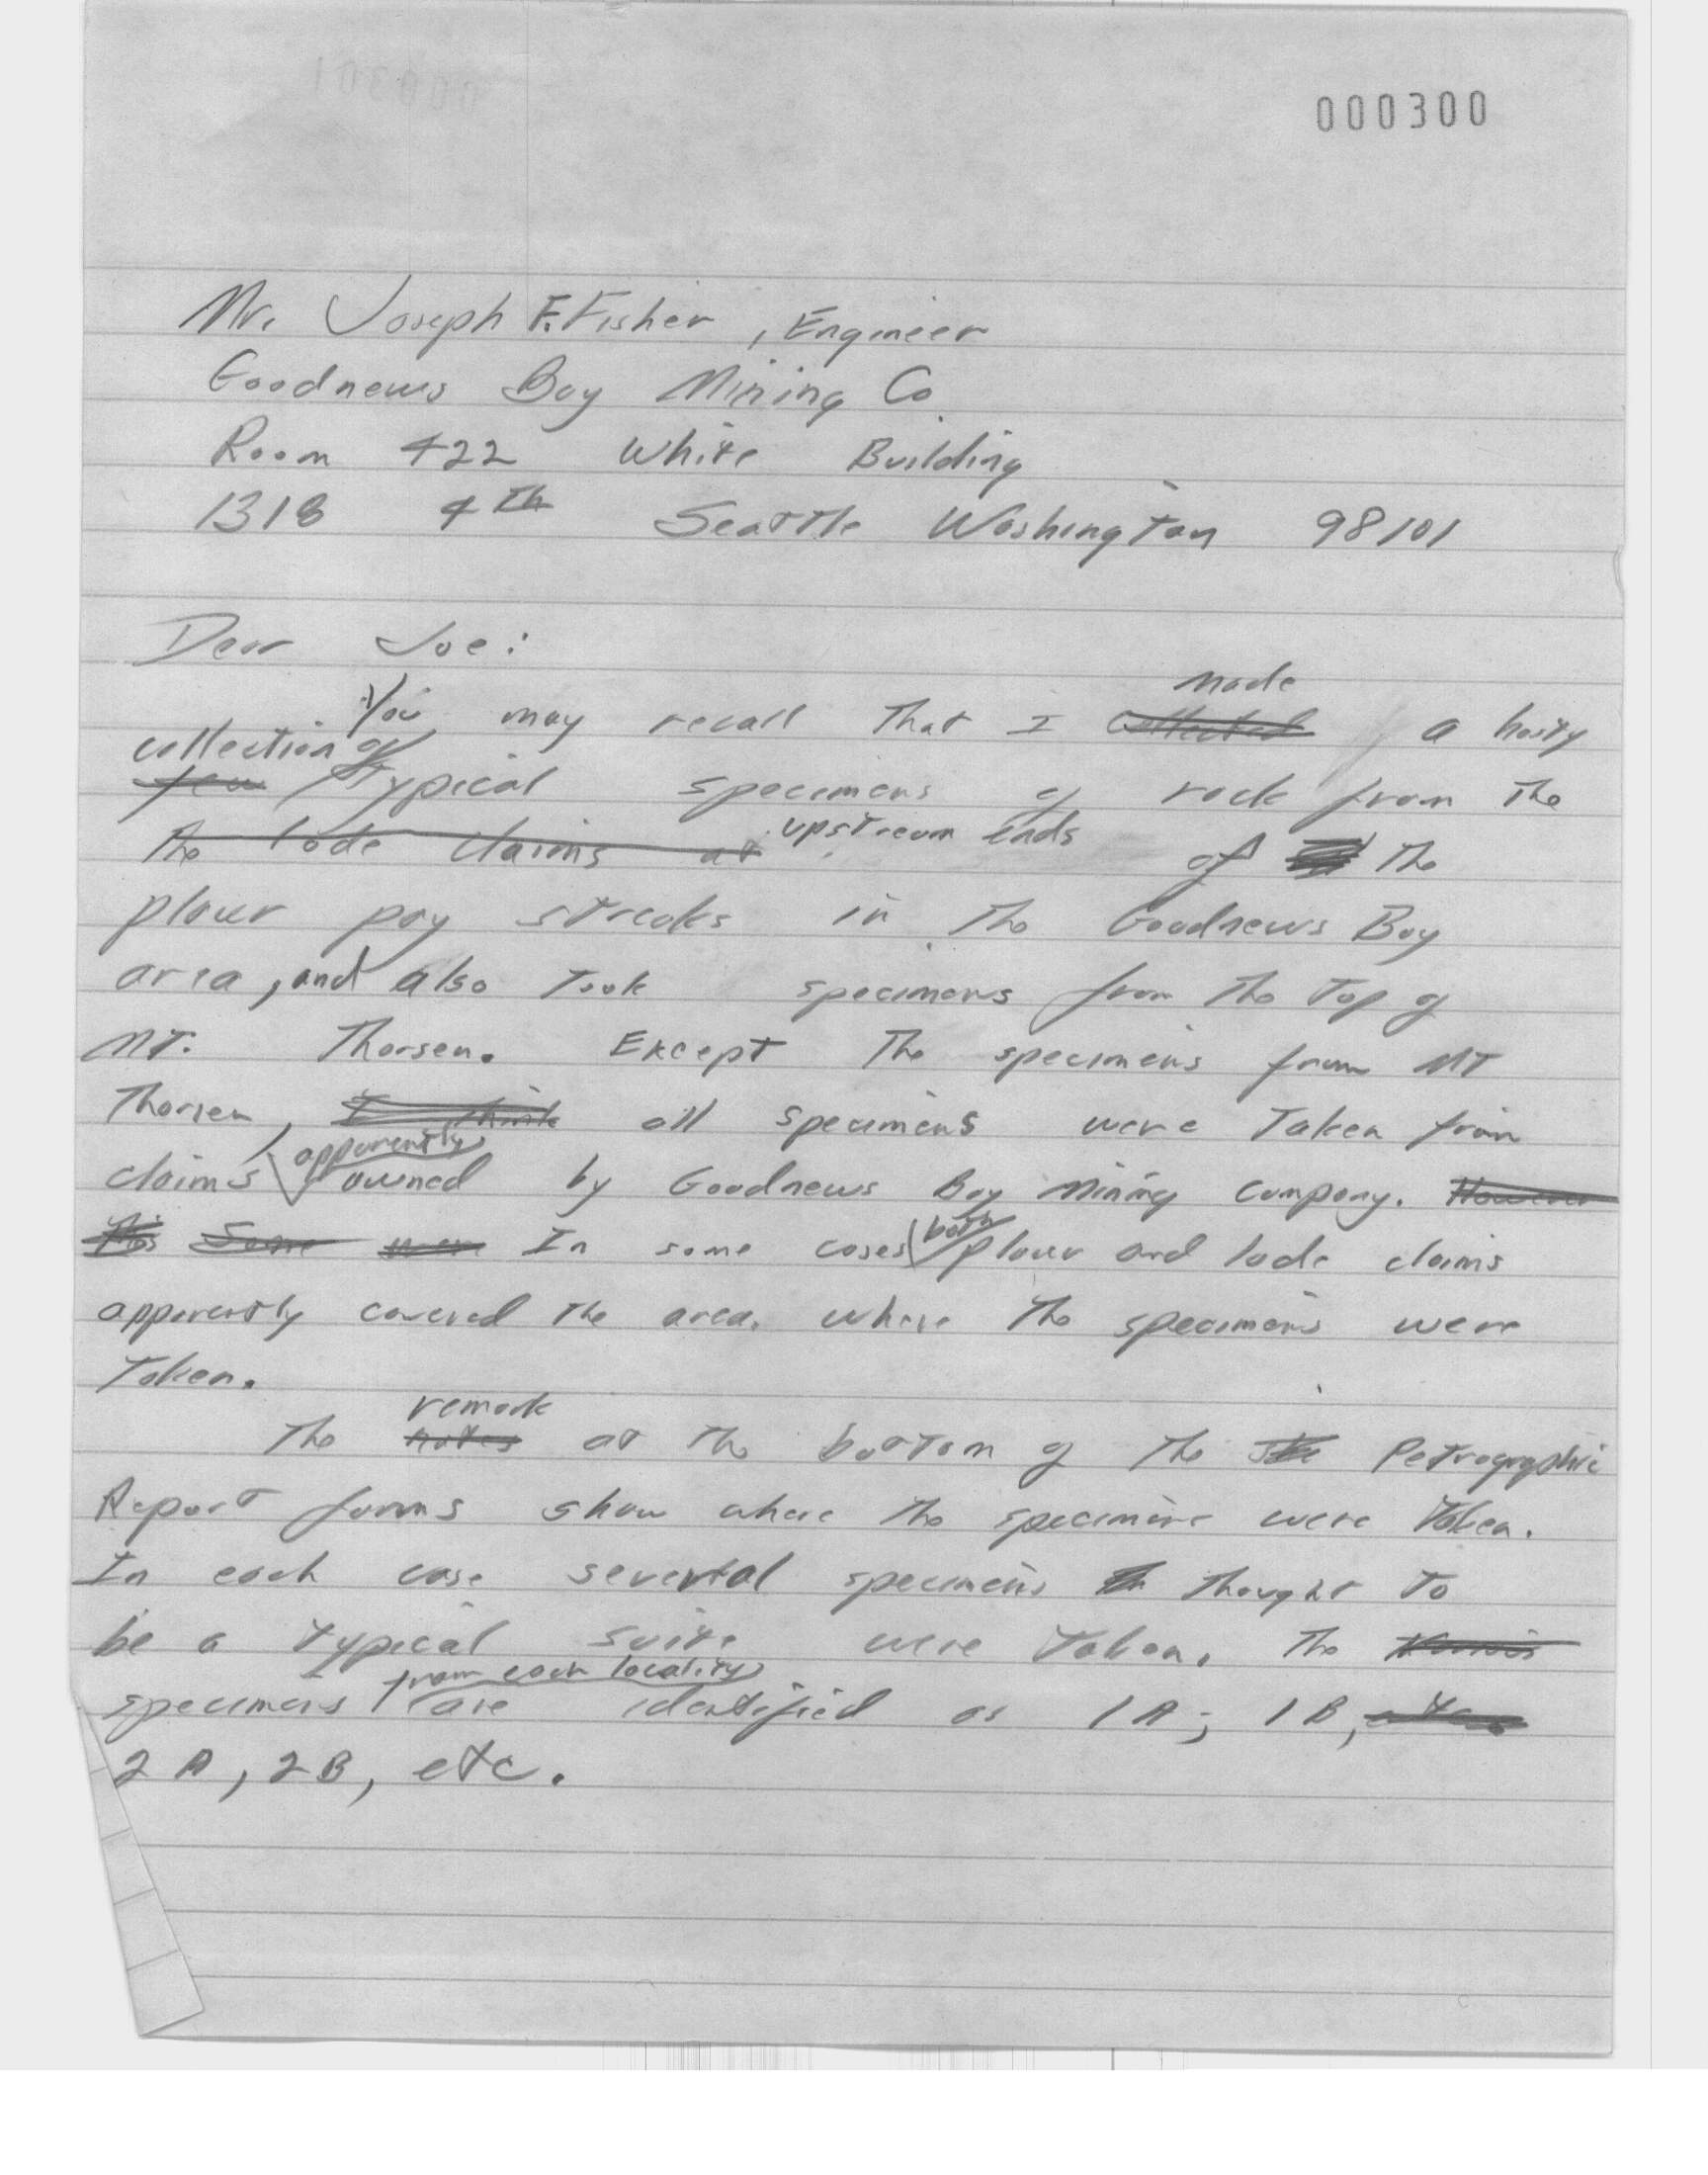 000300
Mr. Joseph F. Fisher, Engineer
Goodnews Bay Mining Co.
Room 422 White Building
1318 4th Seattle Washington 98101
Dear Joe:
made
You may recall that I collected a hasty
collection of
few typical specimens of rock from the
the lode claims at upstream ends of the
placer pay streaks in the Goodnews Bay
area, and also took specimens from the top of
Mt. Thorsen. Except the specimens from Mt
Thorsen, I think all specimens were taken from
apparently
claims owned by Goodnews Bay Mining Company. However
both
this Some were In some cases placer and lode claims
apparently covered the area where the specimens were
taken.
remark
The notes at the bottom of the Petrographic
Report forms show where the specimens were taken.
In each case several specimens thought to
be a typical suite were taken. The
from each locality
specimens are identified as 1A; 1B,
2A, 2B, etc.